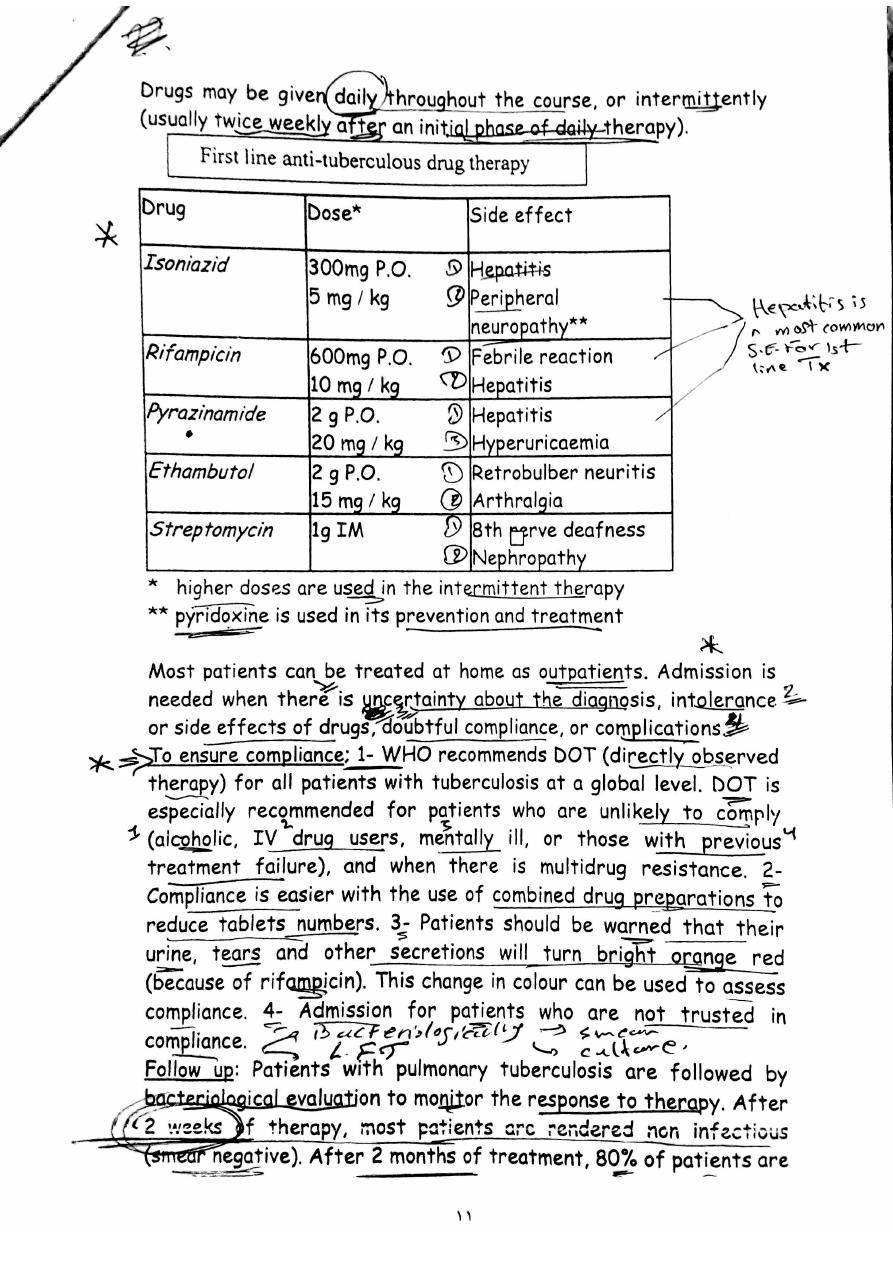 Drugs may be given daily throughout the course, or intermittently
(usually twice weekly after an initial phase of daily therapy).
First line anti-tuberculous drug therapy
Drug Dose* Side effect
Isoniazid 300mg P.O. ① Hepatitis
5 mg / kg ② Peripheral
neuropathy**
Rifampicin 600mg P.O. ① Febrile reaction
10 mg / kg ② Hepatitis
Pyrazinamide 2 g P.O. ① Hepatitis
20 mg / kg ③ Hyperuricaemia
Ethambutol 2 g P.O. ① Retrobulber neuritis
15 mg / kg ② Arthralgia
Streptomycin 1g IM ① 8th nerve deafness
② Nephropathy
Hepatitis is
most common
S.E. For 1st
line Tx
* higher doses are used in the intermittent therapy
** pyridoxine is used in its prevention and treatment
Most patients can be treated at home as outpatients. Admission is
needed when there is uncertainty about the diagnosis, intolerance 2
or side effects of drugs, doubtful compliance, or complications
To ensure compliance; 1- WHO recommends DOT (directly observed
therapy) for all patients with tuberculosis at a global level. DOT is
especially recommended for patients who are unlikely to comply
1 (alcoholic, IV 2 drug users, 3 mentally ill, or those with previous 4
treatment failure), and when there is multidrug resistance. 2-
Compliance is easier with the use of combined drug preparations to
reduce tablets numbers. 3- Patients should be warned that their
urine, tears and other secretions will turn bright orange red
(because of rifampicin). This change in colour can be used to assess
compliance. 4- Admission for patients who are not trusted in
compliance. Bacteriologically → smear
L.F.T culture.
Follow up: Patients with pulmonary tuberculosis are followed by
bacteriological evaluation to monitor the response to therapy. After
2 weeks of therapy, most patients are rendered non infectious
(smear negative). After 2 months of treatment, 80% of patients are
١١